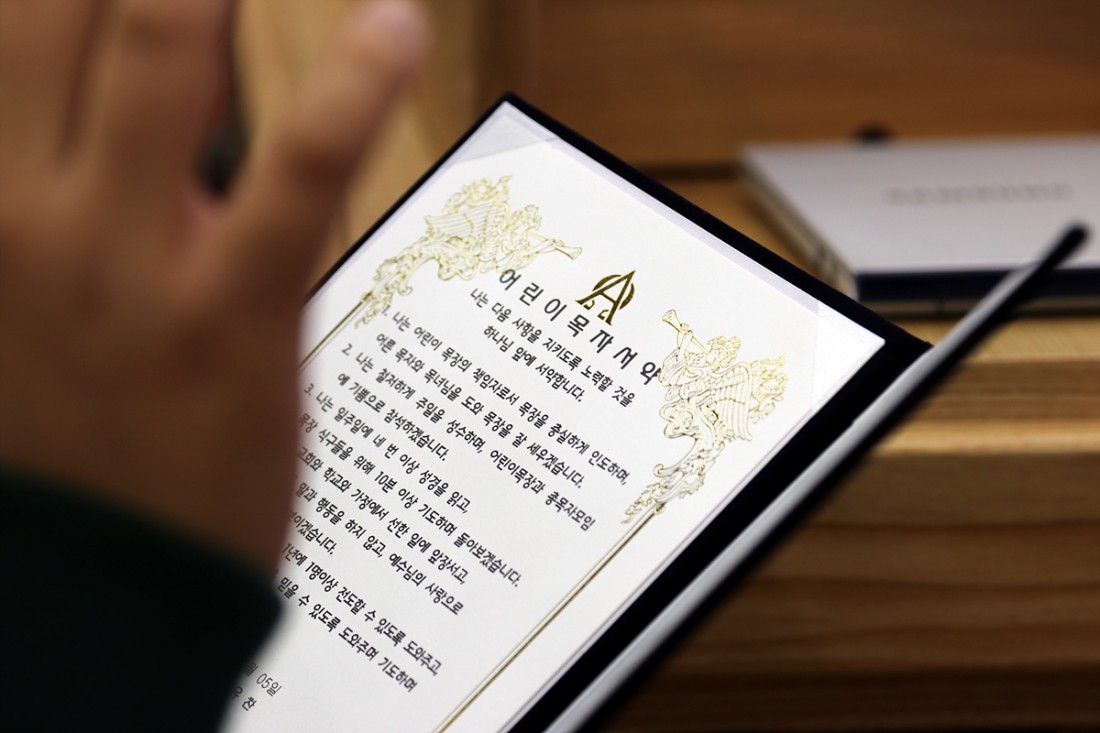 어린이목자서약
나는 다음 사항을 지키도록 노력할 것을
하나님 앞에 서약합니다.
1. 나는 어린이 목장의 책임자로서 목장을 충실하게 인도하며,
어른 목자와 목녀님을 도와 목장을 잘 세우겠습니다.
2. 나는 철저하게 주일을 성수하며, 어린이목장과 총목자모임
에 기쁨으로 참석하겠습니다.
3. 나는 일주일에 네 번 이상 성경을 읽고,
목장 식구들을 위해 10분 이상 기도하며 돌아보겠습니다.
교회와 학교와 가정에서 선한 일에 앞장서고,
말과 행동을 하지 않고, 예수님의 사랑으로
1년에 1명이상 전도할 수 있도록 도와주고,
믿을 수 있도록 도와주며 기도하며
05일
우 찬
SAMSUNG